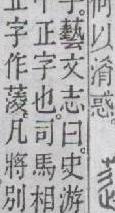 何以淆惑
字藝文志曰史游
中正字也司馬相
正字作蔆凡將別